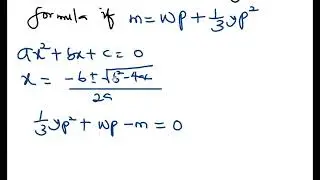 formula if m = wp + 1/3 yp²
ax² + bx + c = 0
x = (-b ± √(b² - 4ac)) / 2a
1/3 yp² + wp - m = 0